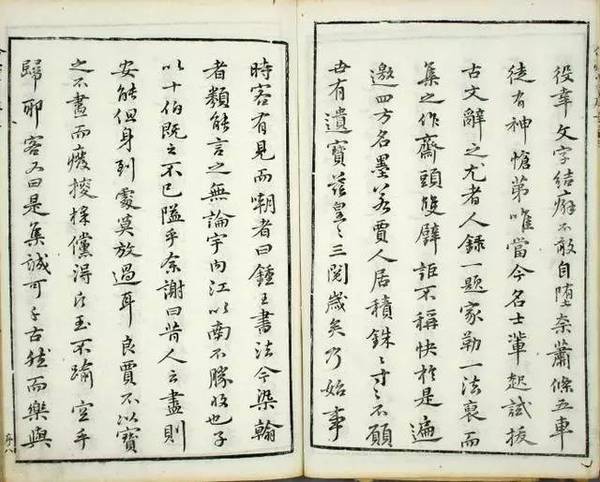 役幸文字結癖不敢自堕奈蕭條五車
徒有神愴第唯當今名士輩起試拔
古文辭之尤者人録一題家勒一法裒而
集之作齋頭雙璧詎不稱快於是遍
邀四方名墨若賈人居積銖〻寸〻不顧
世有遺寶茲皇〻三閱歲矣乃始事
時客有見而嘲者曰鍾王書法今染翰
者類能言之無論宇内江以南不勝收也子
以十伯既之不已隘乎余謝曰昔人云盡則
安能但身到處莫放過耳良賈不以寶
之不盡而癈搜採儻得片玉不踰空手
歸耶客又曰是集誠可千古然而樂與
序八